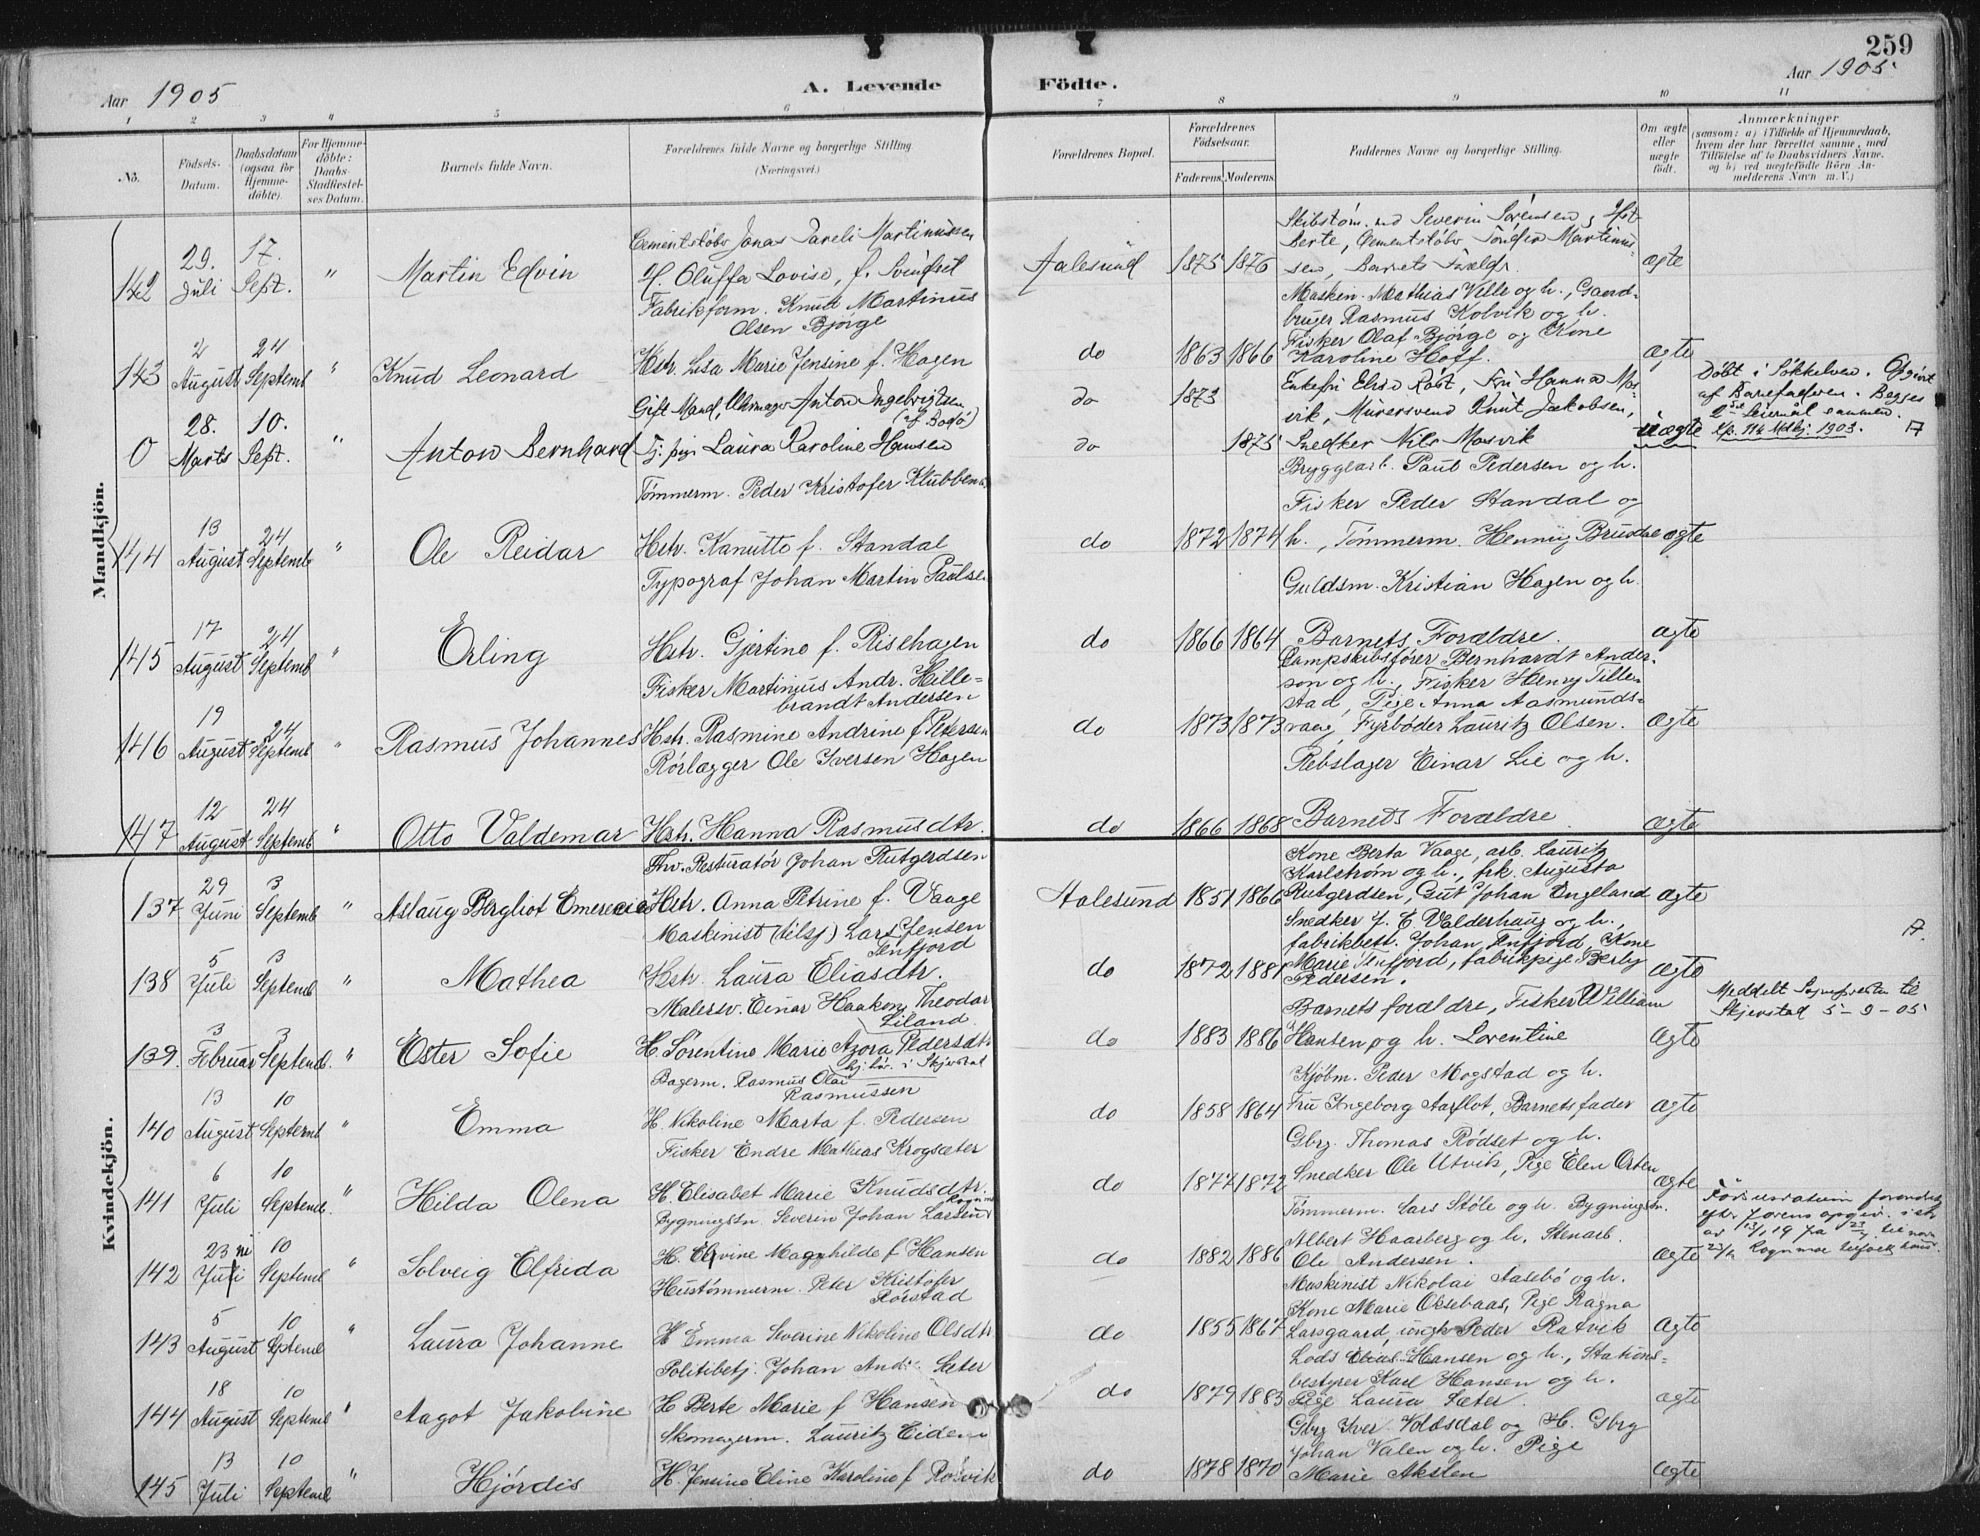 259
Aar 1905
A. Levende
Födte.
Aar 1905
1 2 3 4 5 6 7 8 9 10 11
No.
Födsels-
Datum.
Daabsdatum
(ogsaa for
Hjemme-
döbte).
For Hjemme-
döbte:
Daabs-
Stadfæstel-
ses Datum.
Barnets fulde Navn.
Forældrenes fulde Navne og borgerlige Stilling
(Næringsvei.)
Forældrenes Bopæl.
Forældrenes
Födselsaar.
Faderens. Moderens.
Faddernes Navne og borgerlige Stilling.
Om ægte
eller
uægte
födt.
Anmærkninger
(saasom: a) i Tilfælde af Hjemmedaab,
hvem der har forrettet samme, med
Tilföielse af to Daabsvidners Navne.
og b) ved uægtefödte Börn An-
melderens Navn m. V.)
Mandkjön.
142
29.
Juli
17.
Sept.
"
Martin Edvin
Jonas Martinussen
H. Oluffa Lovise, f.
Aalesund
1875 1876
Severin Sörensen,
Berte, Martinus-
sen, Barnets
Maskin. Mathias Ville og h., Gaard-
bruger Rasmus Kolvik og h.
ægte
143
2
August
24
Septemb
"
Knud Leonard
Fabrikform. Knud Martinus
Olsen Bjørge
Hstr. Lisa Marie Jensine f. Hagen
do
1863 1866
Fisker Olaf Bjørge og Kone
Karoline Hoff.
ægte
0
28.
Marts
10.
Sept.
"
Anton Bernhard
Gift Mand, Anton Ingebrigtsen
(af Bodö)
Laura Karoline Hansen
do 1873
do 1875
Enkefru Elise
Knut Jakobsen,
Snedker Nils Mosvik
uægte
Döbt i Søkkelven. Opgivet
af Barnefaderen. Begges
2det Leiermål sammen.
144
13
August
24
Septemb
"
Ole Reidar
Tømmerm. Peder Kristofer
Hstr. Kanutte f. Standal
do
1872 1874
Bryggearb. Paul Pedersen og h.
Fisker Peder Standal og
h., Tømmerm. Brudøe
ægte
145
17
August
24
Septemb
"
Erling
Typograf Johan Martin
Hstr. Gjertine f. Risehagen
do
1866 1864
Guldsm. Kristian Hagen og h.
Barnets Forældre.
ægte
146
19
August
24
Septemb
"
Rasmus Johannes
Fisker Martinius Andr. Hille-
brandt Andersen
Hstr. Rasmine Andrine f. Petersen
do
1873 1873
Dampskibsfører Bernhardt Ander-
son og h., Fisker Henry Tillen-
stad, Pige Anna Aasmunds-
vaag, Fyrbøder Lauritz Olsen.
ægte
147
12
August
24
Septemb
"
Otto Valdemar
Rørlægger Ole Iversen Hagen
Hstr. Hanna Rasmusdtr.
do
1866 1868
Rebslager Einar Lie og h.
Barnets Forældre.
ægte
Kvindekjön.
137
29
Juni
3
Septemb
"
Aslaug Bergliot
Johan Rutgerdsen
Hstr. Anna Petrine f. Vaage
Aalesund
1851 1866
Kone Berta Vaage, arb. Lauritz
Karlstrøm og h., frk. Augusta
Rutgerdsen, Gut Johan Engeland
ægte
138
5
Juli
3
Septemb
"
Mathea
Maskinist Lars Jensen
Tenfjord
Hstr. Laura Eliasdtr.
do
1872 1881
Snedker J. E Valderhaug og h.,
fabrikbest. Johan Tenfjord, Kone
Marie Tenfjord, fabrikpige
Pedersen.
ægte
139
3
Februar
3
Septemb.
"
Ester Sofie
Malersv. Einar Haakon Theodor
Liland
H. Sørentine Marie Azora Pedersdtr
do
1883 1886
Barnets forældre, Fisker William
Hansen og h. Lorentine
ægte
Meddelt Sognepresten til
Skjerstad 5-9-05
140
13
August
10
Septemb
"
Emma
Bagerm. Rasmus Olai
Rasmussen
H. Nikoline Marta f. Pedersen
do
1858 1864
Kjøbm. Peder Mogstad og h.
Fru Ingeborg Aarflot, Barnets fader
ægte
141
6
Juli
10
Septemb.
"
Hilda Olena
Fisker Endre Mathias Krogsæter
H. Elisabet Marie Knudsdtr.
do
1877 1872
Gbrg. Thomas Rødset og h.
Snedker Ole Utvik, Pige Elen Orten
ægte
142
23
10
Septemb
"
Solveig Elfrida
Bygningssn. Severin Johan Larsen
H. Magnhilde f. Hansen
do
1882 1886
Tømmerm. Lars Støle og h. Bygningssn.
Albert Haarberg og h. Stenarb.
Ole Andersen.
ægte
143
5
August
10
Septemb
"
Laura Johanne
Hustømmerm. Peter Kristofer
Rørstad
H. Emma Severine Nikoline Olsdtr
do
1855 1867
Maskinist Nikolai Aasebö og h.
Kone Marie Oksebaas, Pige Ragna
Larsgaard, Peder Ratvik
ægte
144
18
August
10
Septemb
"
Aagot Jakobine
Politibetj. Johan Andr. Sæter
H. Berte Marie f. Hansen
do
1879 1883
Lods Elias Hansen og h., Stations-
bestyrer Karl Hansen og h.
Pige Laura Sæter.
ægte
145
13
Juli
10
Septemb
"
Hjørdis
Skomagerm. Lauritz Eidem
H. Jensine Eline Karoline f.
do
1878 1870
Gbrg Iver Voldsdal og H. Gbrg
Johan Valen og h. Pige
Marie Akslen
ægte